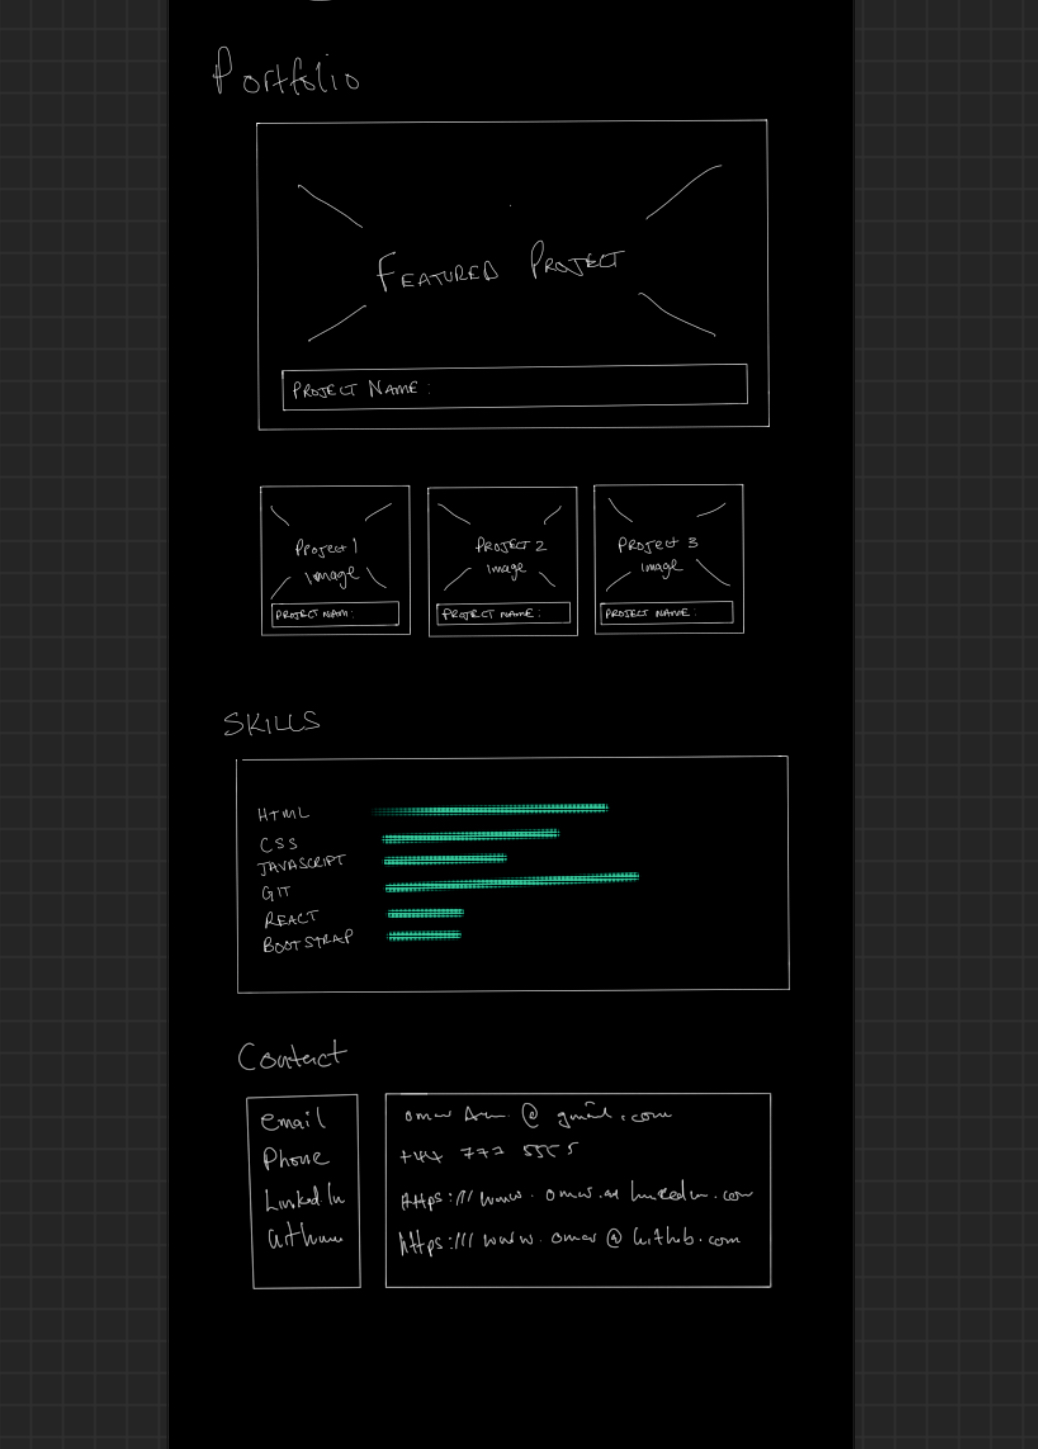 Portfolio
FEATURED PROJECT
PROJECT NAME:
Project 1
image
PROJECT NAM:
PROJECT 2
image
PROJECT NAME:
PROJECT 3
image
PROJECT NAME:
SKILLS
HTML
CSS
JAVASCRIPT
GIT
REACT
BOOTSTRAP
Contact
email
Phone
LinkedIn
omar @ gmail.com
+44 777 5555
https:/// www. omar linkedin.com
https:/// www. omar @ github.com